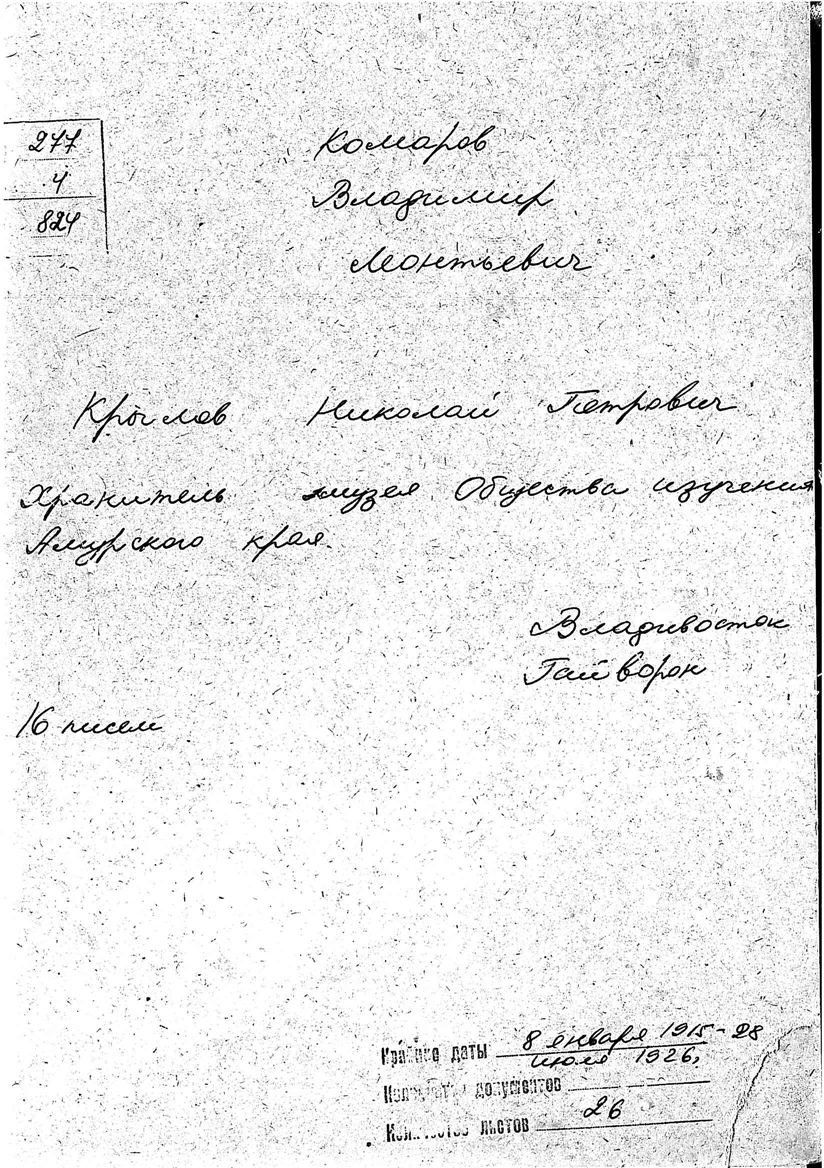 277
4
824
Комаров
Владимир
Леонтьевич
Крылов Николай Петрович
Хранитель музея Общества изучения
Амурского края.
Владивосток
Гайворон
16 писем
Крайние даты 8 января 1915-28
июля 1926,
Количество документов
Количество листов 26